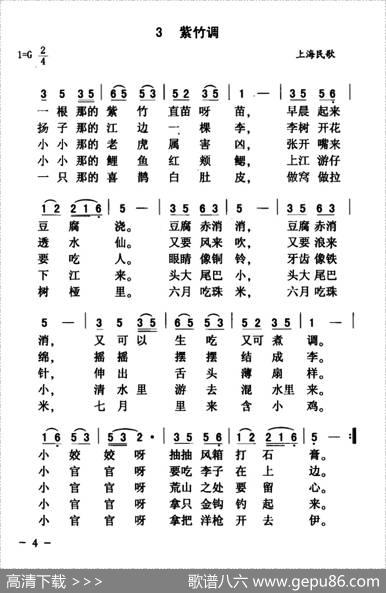 3 紫竹调
1=G 2/4
上海民歌
一根那的紫竹直苗呀苗，早晨起来
扬子那的江边一棵李，李树开花
小小那的老虎属害凶，张开嘴来
小小那的鲤鱼红颊鳃，上江游仔
一只那的喜鹊白肚皮，做窝做拉
豆腐浇。豆腐赤消，豆腐赤消
透水仙。又要风来吹，又要浪来
要吃人。眼睛像铜铃，牙齿像铁
下江来。头大尾巴小，头大尾巴
树桠里。六月吃珠米，六月吃珠
消，又可以生吃又可煮调。
绵，摇摇摆摆结成李。
针，伸出舌头薄扇样。
小，清水里游去混水里来。
米，七月里来含小鸡。
小姣姣呀抽抽风箱打石膏。
小官官呀要吃李子在上边。
小官官呀荒山之处要留心。
小官官呀拿只金钩钓起来。
小官官呀拿把洋枪开去伊。
- 4 -
高清下载 > >>>
歌谱八六 www.gepu86.com